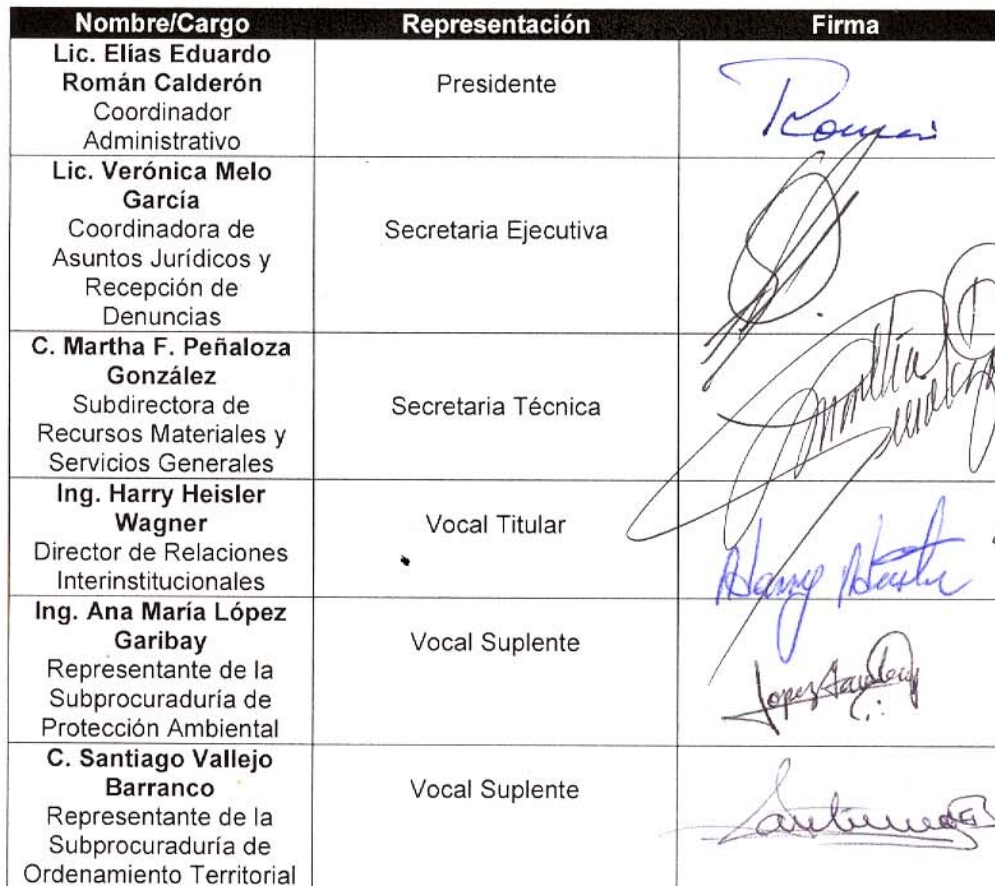 Nombre/Cargo Representación Firma
Lic. Elías Eduardo
Román Calderón
Coordinador
Administrativo
Presidente
Roman
Lic. Verónica Melo
García
Coordinadora de
Asuntos Jurídicos y
Recepción de
Denuncias
Secretaria Ejecutiva
C. Martha F. Peñaloza
González
Subdirectora de
Recursos Materiales y
Servicios Generales
Secretaria Técnica
Ing. Harry Heisler
Wagner
Director de Relaciones
Interinstitucionales
Vocal Titular
Harry Heisler
Ing. Ana María López
Garibay
Representante de la
Subprocuraduría de
Protección Ambiental
Vocal Suplente
Lopez Garibay
C. Santiago Vallejo
Barranco
Representante de la
Subprocuraduría de
Ordenamiento Territorial
Vocal Suplente